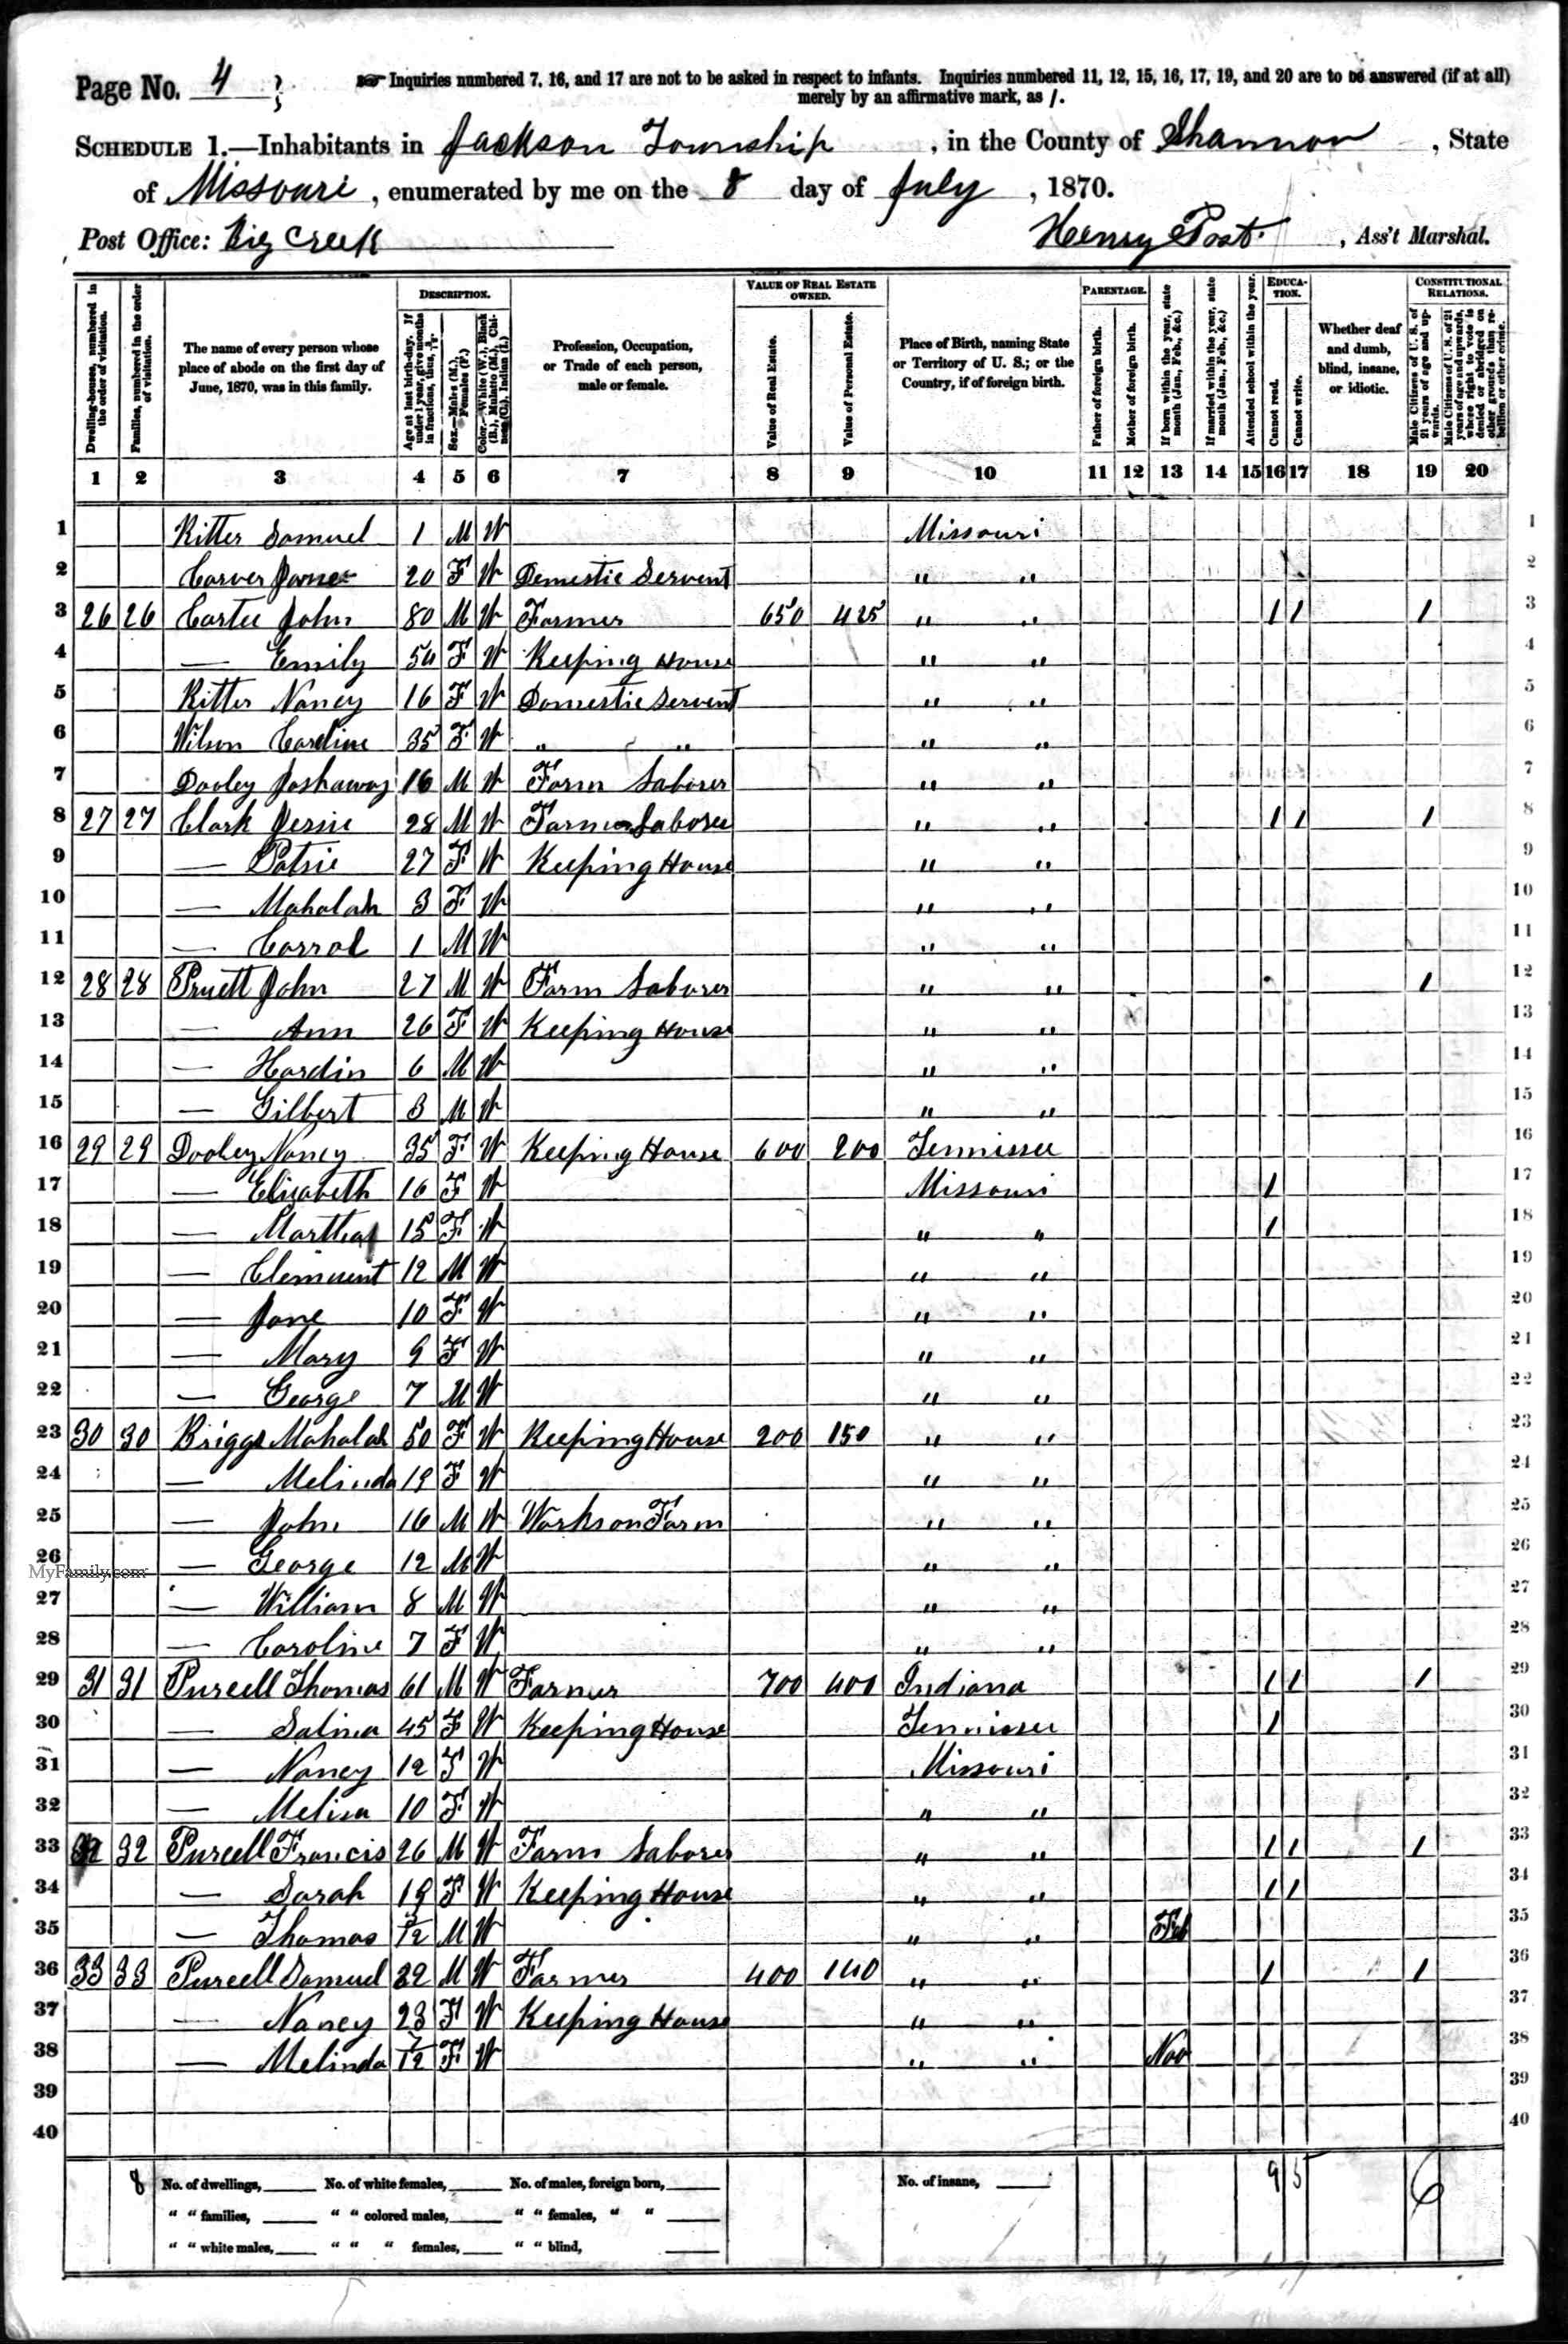 Page No. 4
Inquiries numbered 7, 16, and 17 are not to be asked in respect to infants. Inquiries numbered 11, 12, 15, 16, 17, 19, and 20 are to be answered (if at all)
merely by an affirmative mark, as /.
SCHEDULE 1.—Inhabitants in Jackson Township, in the County of Shannon, State
of Missouri, enumerated by me on the 8 day of July, 1870.
Post Office: Big Creek Henry Post, Ass't Marshal.
Dwelling-houses, numbered in the order of visitation.
Families, numbered in the order of visitation.
The name of every person whose place of abode on the first day of June, 1870, was in this family.
DESCRIPTION.
Age at last birth-day. If under 1 year, give months in fractions, thus,
Sex.—Males (M.), Females (F.)
Color.—White (W.), Black (B.), Mulatto (M.), Chinese (C.), Indian (I.)
Profession, Occupation, or Trade of each person, male or female.
VALUE OF REAL ESTATE OWNED.
Value of Real Estate.
Value of Personal Estate.
Place of Birth, naming State or Territory of U. S.; or the Country, if of foreign birth.
PARENTAGE.
Father of foreign birth.
Mother of foreign birth.
If born within the year, state month (Jan., Feb., &c.)
If married within the year, state month (Jan., Feb., &c.)
Attended school within the year.
EDUCATION.
Cannot read.
Cannot write.
Whether deaf and dumb, blind, insane, or idiotic.
CONSTITUTIONAL RELATIONS.
Male Citizens of U. S. of 21 years of age and upwards.
Male Citizens of U. S. of 21 years of age and upwards, whose right to vote is denied or abridged on other grounds than rebellion or other crime.
1 2 3 4 5 6 7 8 9 10 11 12 13 14 15 16 17 18 19 20
1 Ritter Samuel 1 M W Missouri 1
2 Carver Jane 20 F W Demestic Servent " " 2
3 26 26 Carter John 80 M W Farmer 650 425 " " 1 1 1 3
4 — Emily 54 F W Keeping House " " 4
5 Ritter Nancy 16 F W Domestic Servent " " 5
6 Wilson Caroline 35 F W " " " " 6
7 Dooley Joshaway 16 M W Farm Laborer " " 7
8 27 27 Clark Jessie 28 M W Farm Laborer " " 1 1 1 8
9 — Patsie 27 F W Keeping House " " 9
10 — Mahalah 3 F W " " 10
11 — Carrol 1 M W " " 11
12 28 28 Pruett John 27 M W Farm Laborer " " 1 12
13 — Ann 26 F W Keeping House " " 13
14 — Hardin 6 M W " " 14
15 — Gilbert 3 M W " " 15
16 29 29 Dooley Nancy 35 F W Keeping House 600 200 Tennissee 16
17 — Elizabeth 16 F W Missouri 1 17
18 — Martha 15 F W " " 1 18
19 — Clemuent 12 M W " " 19
20 — Jane 10 F W " " 20
21 — Mary 9 F W " " 21
22 — George 7 M W " " 22
23 30 30 Briggs Mahalah 50 F W Keeping House 200 150 " " 23
24 — Melinda 19 F W " " 24
25 — John 16 M W Works on Farm " " 25
26 — George 12 M W " " 26
MyFamily.com
27 — William 8 M W " " 27
28 — Caroline 7 F W " " 28
29 31 31 Purcell Thomas 61 M W Farmer 700 400 Indiana 1 1 1 29
30 — Salina 45 F W Keeping House Tennissee 1 30
31 — Nancy 12 F W Missouri 31
32 — Melisa 10 F W " " 32
33 32 32 Purcell Francis 26 M W Farm Laborer " " 1 1 1 33
34 — Sarah 19 F W Keeping House " " 1 1 34
35 — Thomas 3/12 M W " " Feb 35
36 33 33 Purcell Samuel 22 M W Farmer 400 140 " " 1 1 36
37 — Nancy 23 F W Keeping House " " 37
38 — Melinda 7/12 F W " " Nov 38
39 39
40 40
8 No. of dwellings, No. of white females, No. of males, foreign born, No. of insane, 9 5 6
" " families, " " colored males, " " females, " "
" " white males, " " " females, " " blind,